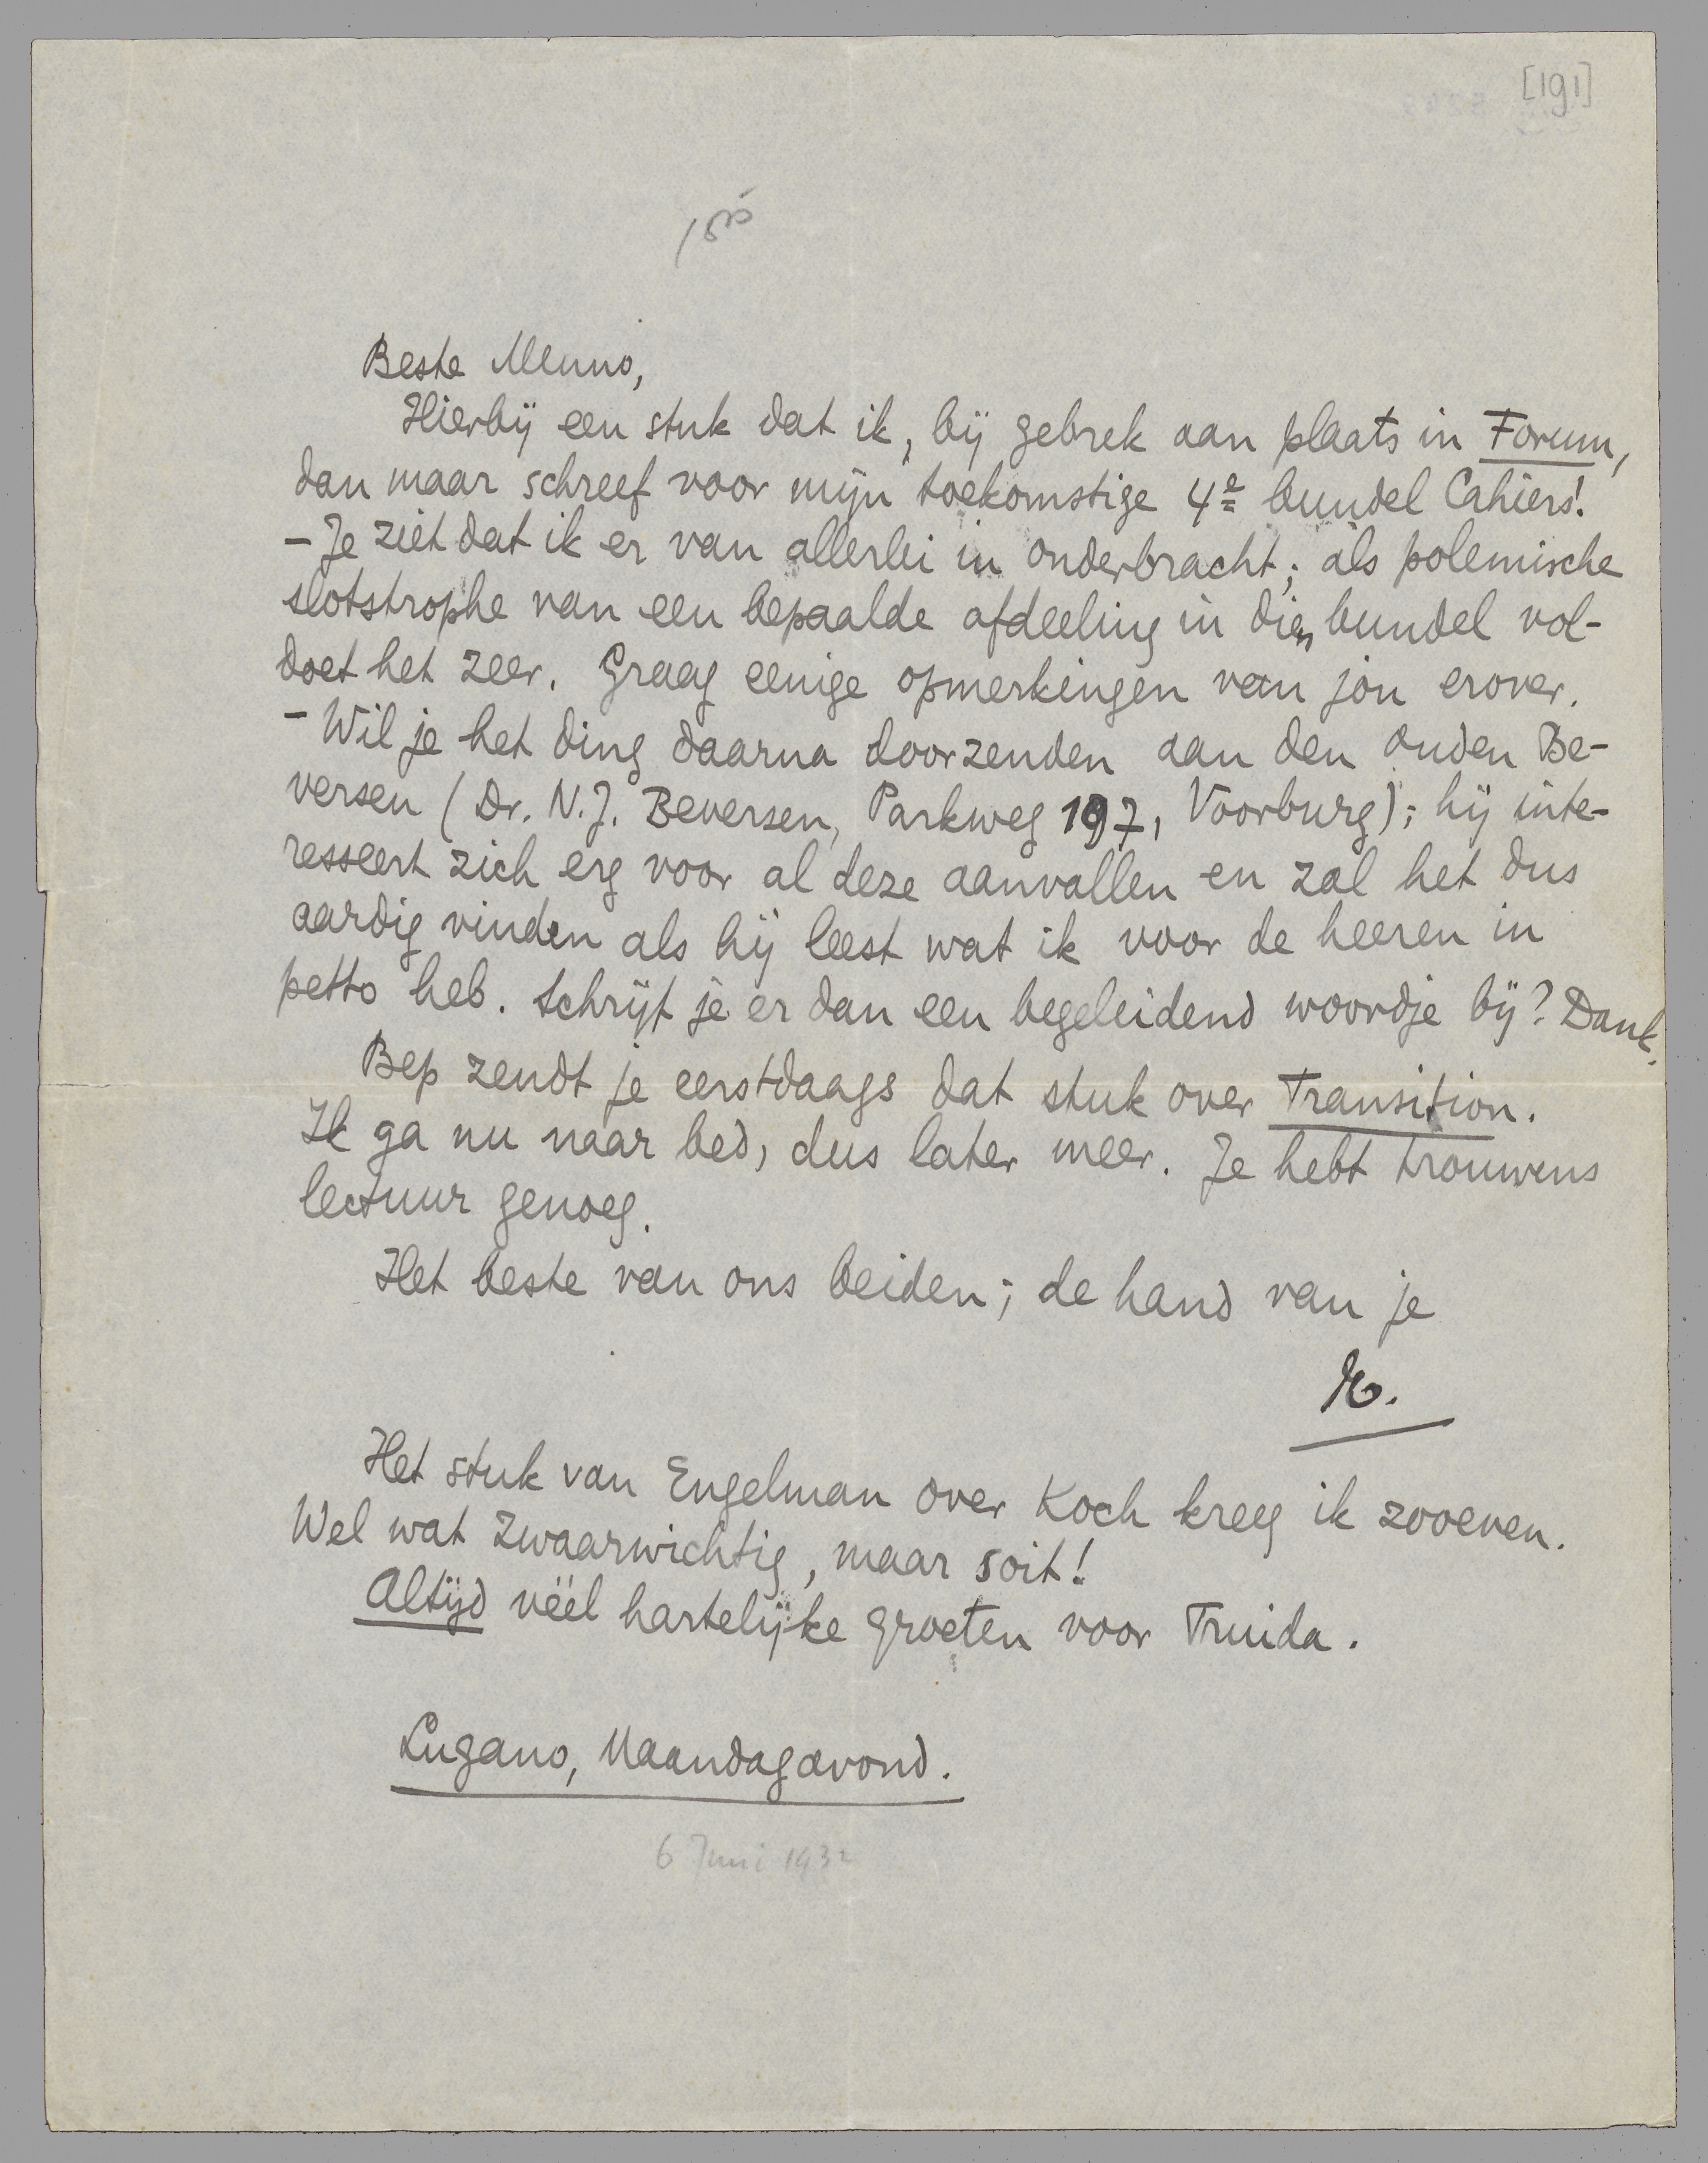 [191]
Beste Menno,
Hierbij een stuk dat ik, bij gebrek aan plaats in Forum,
dan maar schreef voor mijn toekomstige 4e bundel Cahiers!
– Je ziet dat ik er van allerlei in onderbracht; als polemische
slotstrophe van een bepaalde afdeeling in dien bundel vol-
doet het zeer. Graag eenige opmerkingen van jou erover.
– Wil je het ding daarna doorzenden aan den ouden Be-
versen (Dr. N.J. Beversen, Parkweg 197, Voorburg); hij inte-
resseert zich erg voor al deze aanvallen en zal het dus
aardig vinden als hij leest wat ik voor de heeren in
petto heb. Schrijf je er dan een begeleidend woordje bij? Dank.
Bep zendt je eerstdaags dat stuk over Transition.
Ik ga nu naar bed, dus later meer. Je hebt trouwens
lectuur genoeg.
Het beste van ons beiden; de hand van je
E.
Het stuk van Engelman over Koch kreeg ik zooeven.
Wel wat zwaarwichtig, maar soit!
Altijd véél hartelijke groeten voor Truida.
Lugano, Maandagavond.
6 Juni 1932